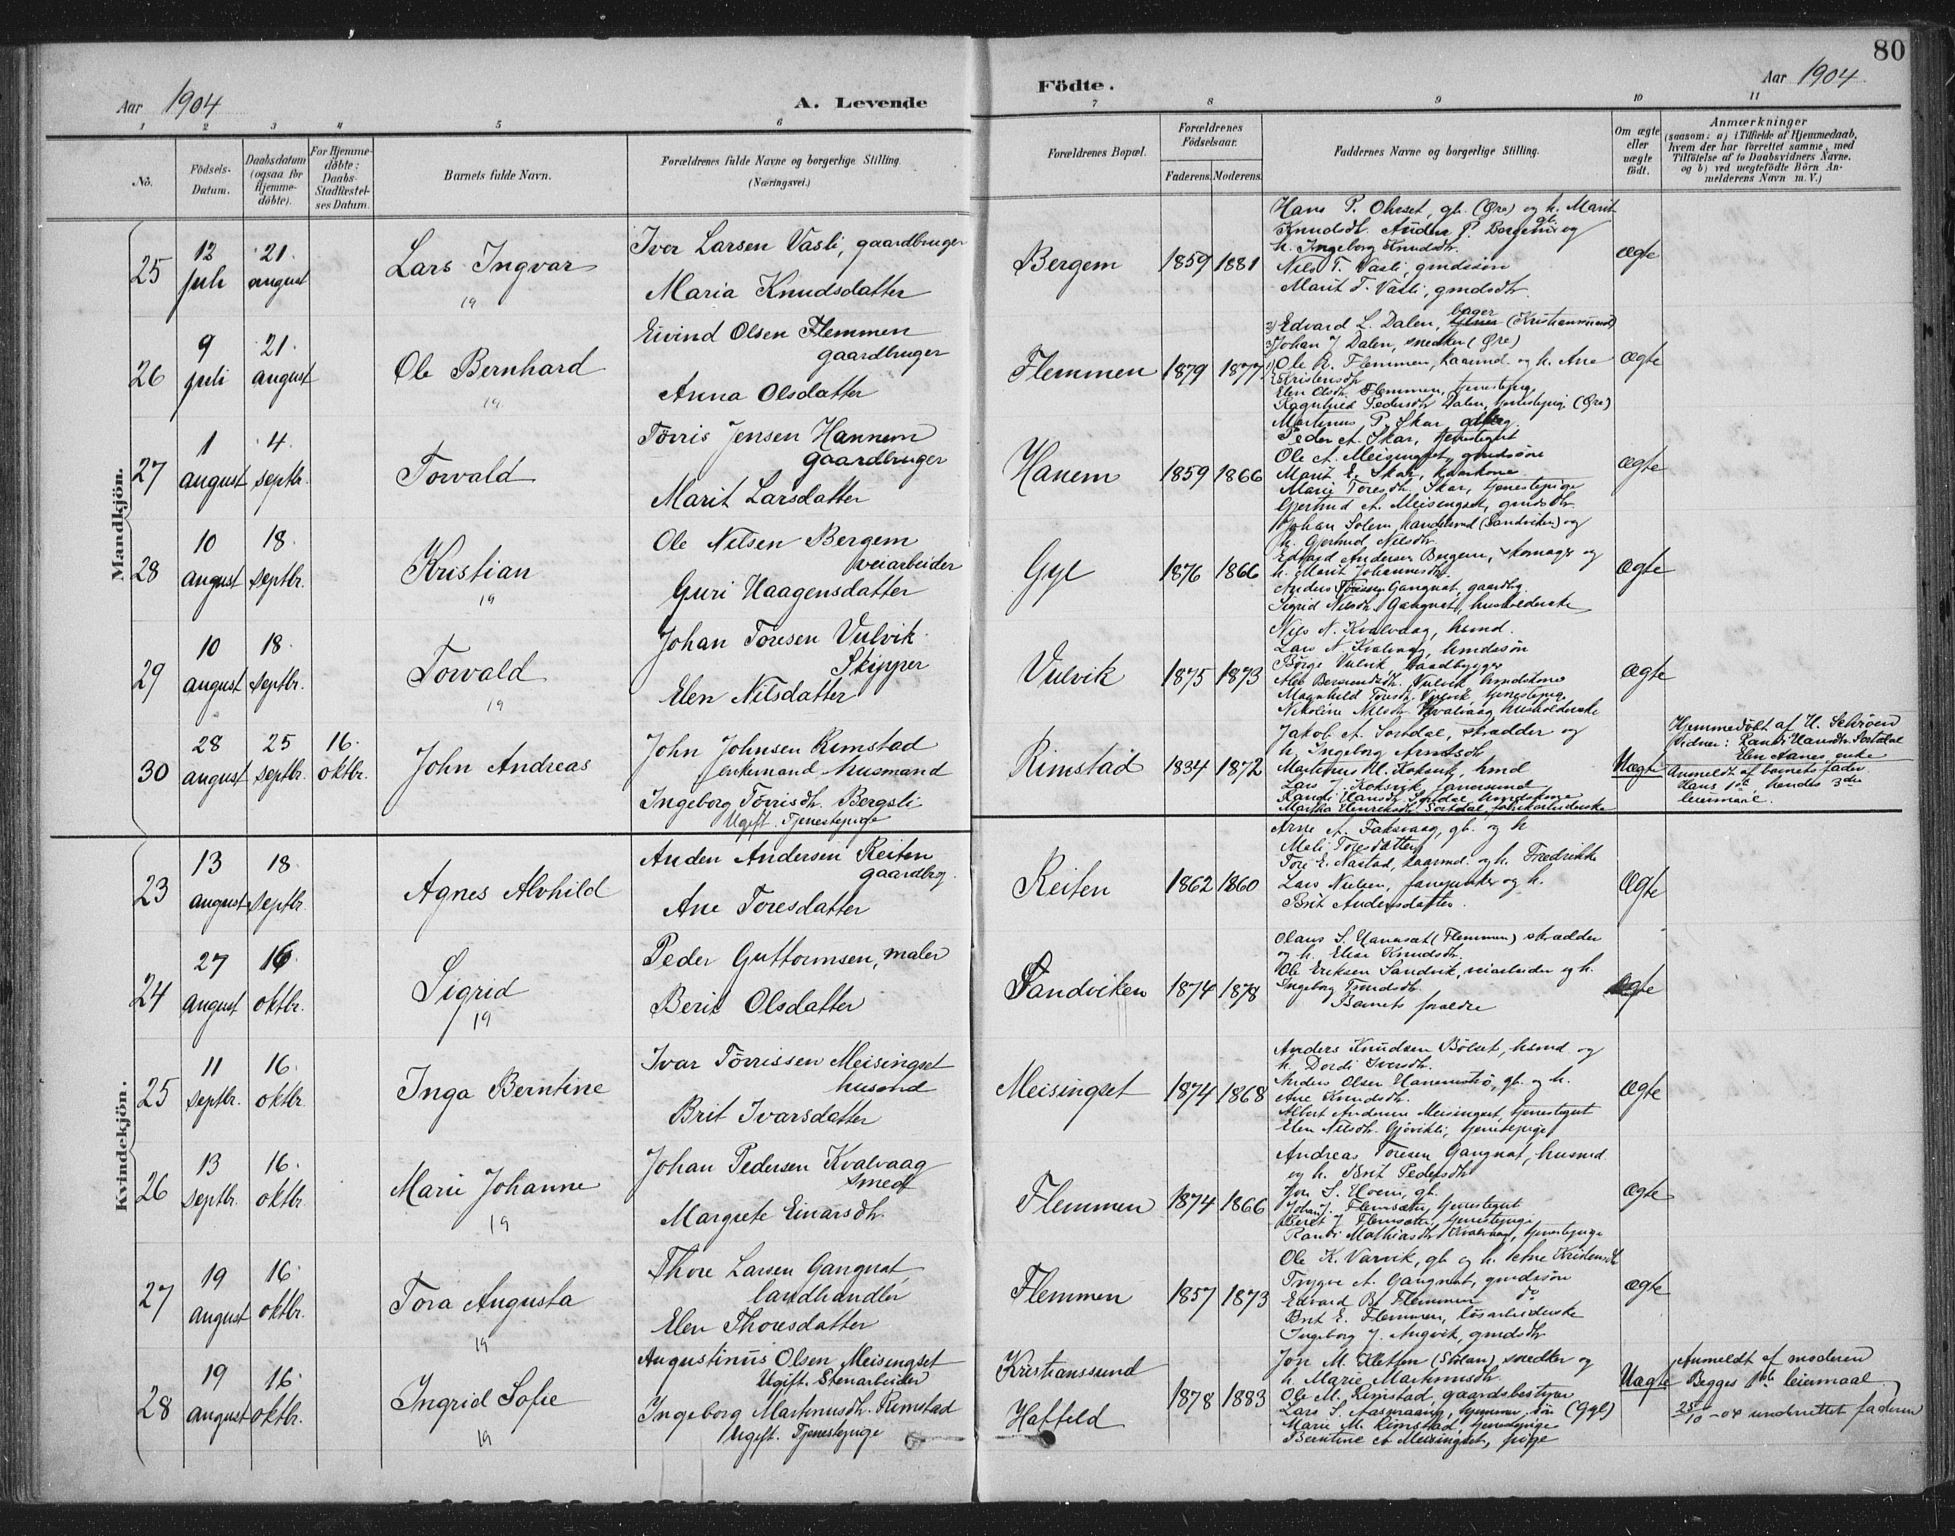 80
Aar 1904
A. Levende
Födte.
Aar 1904
1 2 3 4 5 6 7 8 9 10 11
No.
Födsels-Datum.
Daabsdatum (ogsaa for Hjemme-döbte).
For Hjemme-döbte: Daabs-Stadfestel-ses Datum.
Barnets fulde Navn.
Forældrenes fulde Navne og borgerlige Stilling.
(Næringsvei.)
Forældrenes Bopæl.
Forældrenes Födselsaar.
Faderens. Moderens.
Faddernes Navne og borgerlige Stilling.
Om ægte eller uægte födt.
Anmærkninger
(saasom: a) i Tilfælde af Hjemmedaab,
hvem der har forrettet samme, med
Tilföielse af to Daabsvidners Navne,
og b) ved uægtefödte Börn An-
melderens Navn m. V.)
Mandkjön.
25
12 juli
21. august
Lars Ingvar
19
Iver Larsen Vasli, gaardbruger
Maria Knudsdatter
Bergem
1859 1881
Hans P. Ohrset, gb. (Øre) og h. Marit
Knudsdt. Anders P. Bergem gb. og
h. Ingeborg Knudsdtr.
Nils T. Vasli, gmdssøn
Marit T. Vasli, gmdsdtr.
ægte
26
9 juli
21. august
Ole Bernhard
19.
Eivind Olsen Flemmen
gaardbruger
Anna Olsdatter
Flemmen
1879 1877
Edvard L. Dalen, bager (Kristianssund)
Johan J Dalen, snedker (Øre)
Ole R. Flemmen, kaarmd. og h. Ane
Kristensdtr.
Elen Olsdtr. Flemmen, tjenestepige
Ragnhild Pedersdtr Dalen, tjenestepig (Øre)
ægte
27
1 august
4. septbr.
Torvald
Tørris Jensen Hannem
gaardbruger
Marit Larsdatter
Hanem
1859 1866
Martinus P. Skar
Peder A. Skar, tjenestegut
Ole A. Meisingset, gmdssøn
Marit E. Skar, kaarkone
Marie Toresdtr. Skar, tjenestepige
Gjertrud A. Meisingset, gmdsdtr.
ægte
28
10 august
18. septbr.
Kristian
19
Ole Nilsen Bergem
veiarbeider
Guri Haagensdatter
Gyl
1876 1866
Johan Solem, handelsmd (Sandviken) og
h. Gjertrud Nilsdtr.
Edvard Andersen Bergem, skomager og
h. Marit Johannesdtr.
Anders Toresen Gangnat, gaardbg.
Sigrid Nilsdtr. Gangnat, husholderske
ægte
29
10 august
18. septbr.
Torvald
19
Johan Toresen Vulvik.
Skipper
Elen Nilsdatter
Vulvik
1875 1873
Nils N. Kvalvaag, hsmd.
Lars N. Kvalvaag, hsmdssøn
Børge Vulvik, baadbygger
Vulvik hsmdskone
Magnhild Toresdtr. Vulvik, tjenestepige
Nikoline Nilsdtr. Kvalvaag husholderske
ægte
30
28 august
25 septbr.
16. oktbr.
John Andreas
John Johnsen Rimstad
enkemand husmand
Ingeborg Tørrisdtr. Bergsli
Ugift. Tjenestepige
Rimstad
1834 1872
Jakob A. Sørdal, skrædder og
h. Ingeborg Arntsdtr.
Martinus M. Koksvik, hsmd
Lars Koksvik
Randi Hansdtr. Sørdal, hsmdskone
Martha Henriksdtr. Sørdal, fabrikarbeiderske
Uægte
Hjemmedøbt af H. Schrøen
Vidner: Randi Hansdtr. Sørdal
Elen Aanes, enke
Anmeldt af barnets fader
Hans 1ste, hendes 3die
leiermaal.
Kvindekjön.
23
13 august
18 septbr.
Agnes Alvhild
Anders Andersen Reiten
gaardbrg.
Ane Toresdatter
Reiten
1862 1860
Arne A. Fahsvaag, gb. og h
Mali Toresdatter
Tore E. Nastad, kaarmd. og h. Fredrikke
Lars Nielsen, og h.
Brit Andersdatter.
Ægte
24
27 august
16. oktbr.
Sigrid
19
Peder Guttormsen, maler
Berit Olsdatter
Sandviken
1874 1878
Olaus S. Hanesæt (Flemmen) skrædder
og h. Elise Knudsdtr.
Ole Eriksen Sandvik, veiarbeider og h.
Ingeborg
Barnets forældre
ægte
25
11 septbr.
16. oktbr.
Inga Berntine
Ivar Tørrissen Meisingset
husmd
Brit Ivarsdatter
Meisingset
1874 1868
Anders Knudsen Bølset, hsmd og
h. Dordi Iversdtr.
Anders Olsen Hanemstrø, gb. og h.
Ane Knudsdtr.
Albert Andersen Meisingset, tjenestegut
Elen Nilsdtr. Gjøvikli, tjenestepige
ægte
26
13 septbr.
16. oktbr.
Marie Johanne
19
Johan Pedersen Kvalvaag
Smed
Margrete Einarsdtr.
Flemmen
1874 1866
Andreas Toresen Gangnat, husmd
og h. Brit Pedersdtr
Jon S. Hoem, gb.
Johan J. Flemsæter, tjenestegut
Beret J Flemsæter, tjenestepige
Randi Mathiasdtr Kvalvaag, tjenestepige
ægte
27
19 august
16. oktbr.
Tora Augusta
19
Thore Larsen Gangnat,
landhandler
Elen Thoresdatter
Flemmen
1857 1873
Ole K. Varvik, gb og h. Ane Kristensdtr
Trygve A. Gangnat, gmdssøn
Edvard B. Flemmen do
Brit E. Flemmen, løsarbeiderske
Ingeborg J. Angvik, gmdsdtr
ægte
28
19 august
16. oktbr.
Ingrid Sofie
19
Augustinus Olsen Meisingset
Ugift. Stenarbeider
Ingeborg Martinusdtr. Rimstad
Ugift. Tjenestepige
Kristianssund
Haffeld
1878 1883
Jon M. Kletten snedker og
h. Marie Martinusdtr.
Ole M. Rimstad, gaardsbestyrer
Lars S. Aasmaaing (Gyl)
Marie M. Rimstad, tjenestepige
Berntine A Meisingset, pige
Uægte
Anmeldt af moderen
Begges 1ste leiermaal
25/10 -04 underrettet faderen